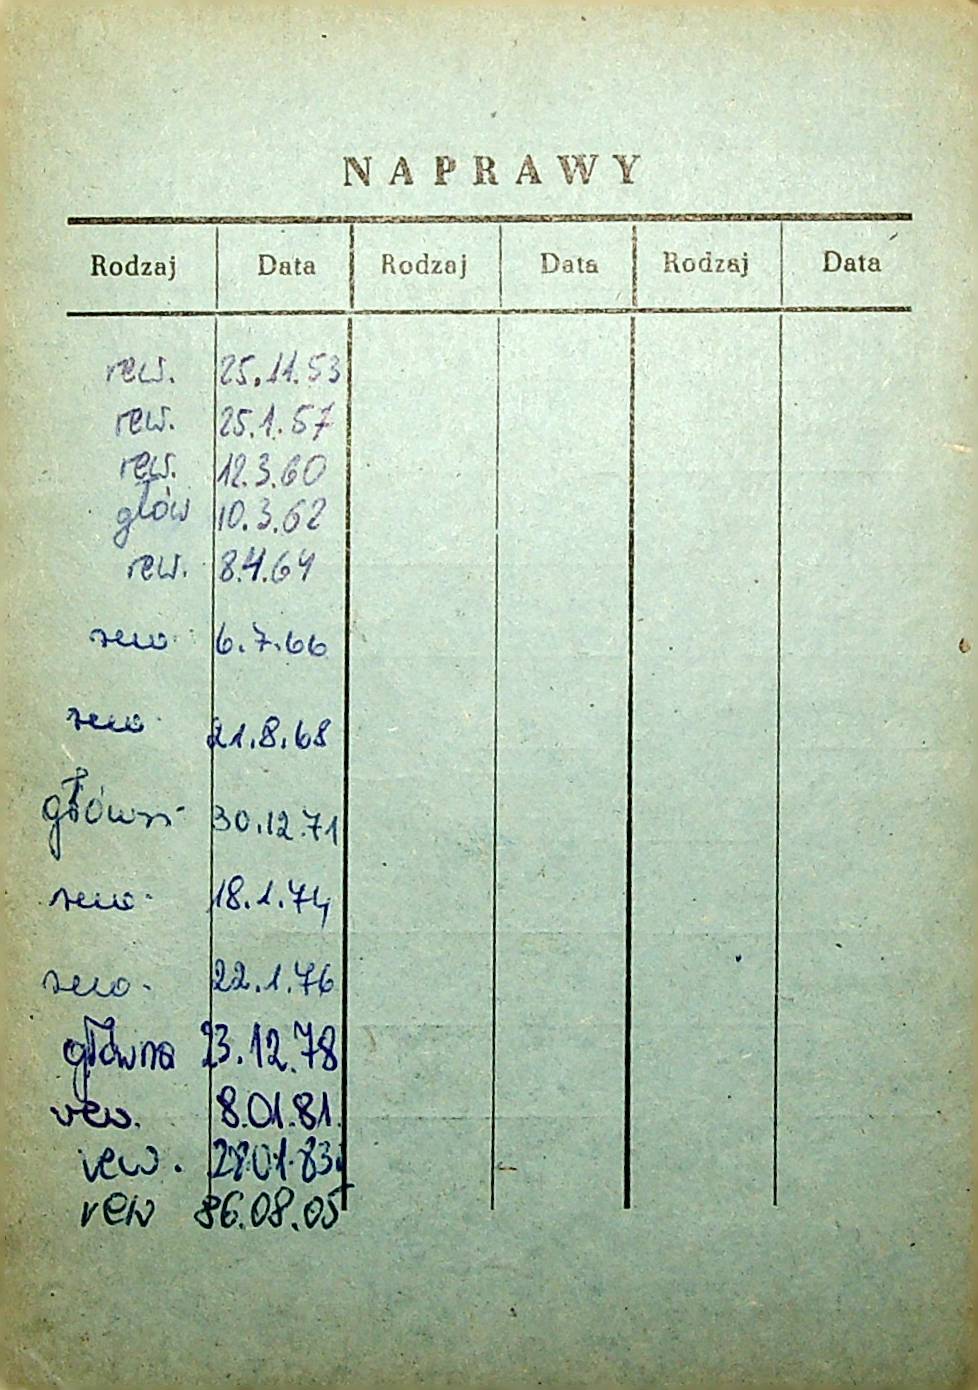 NAPRAWY
Rodzaj Data Rodzaj Data Rodzaj Data
rew. 25.11.53
rew. 25.1.57
rew. 12.3.60
głów 10.3.62
rew. 8.4.64
rew. 6.7.66
rew. 21.8.68
główn 30.12.71
rew. 18.1.74
rew. 22.1.76
główna 23.12.78
rew. 8.01.81.
rew. 01.83
rew 86.08.05